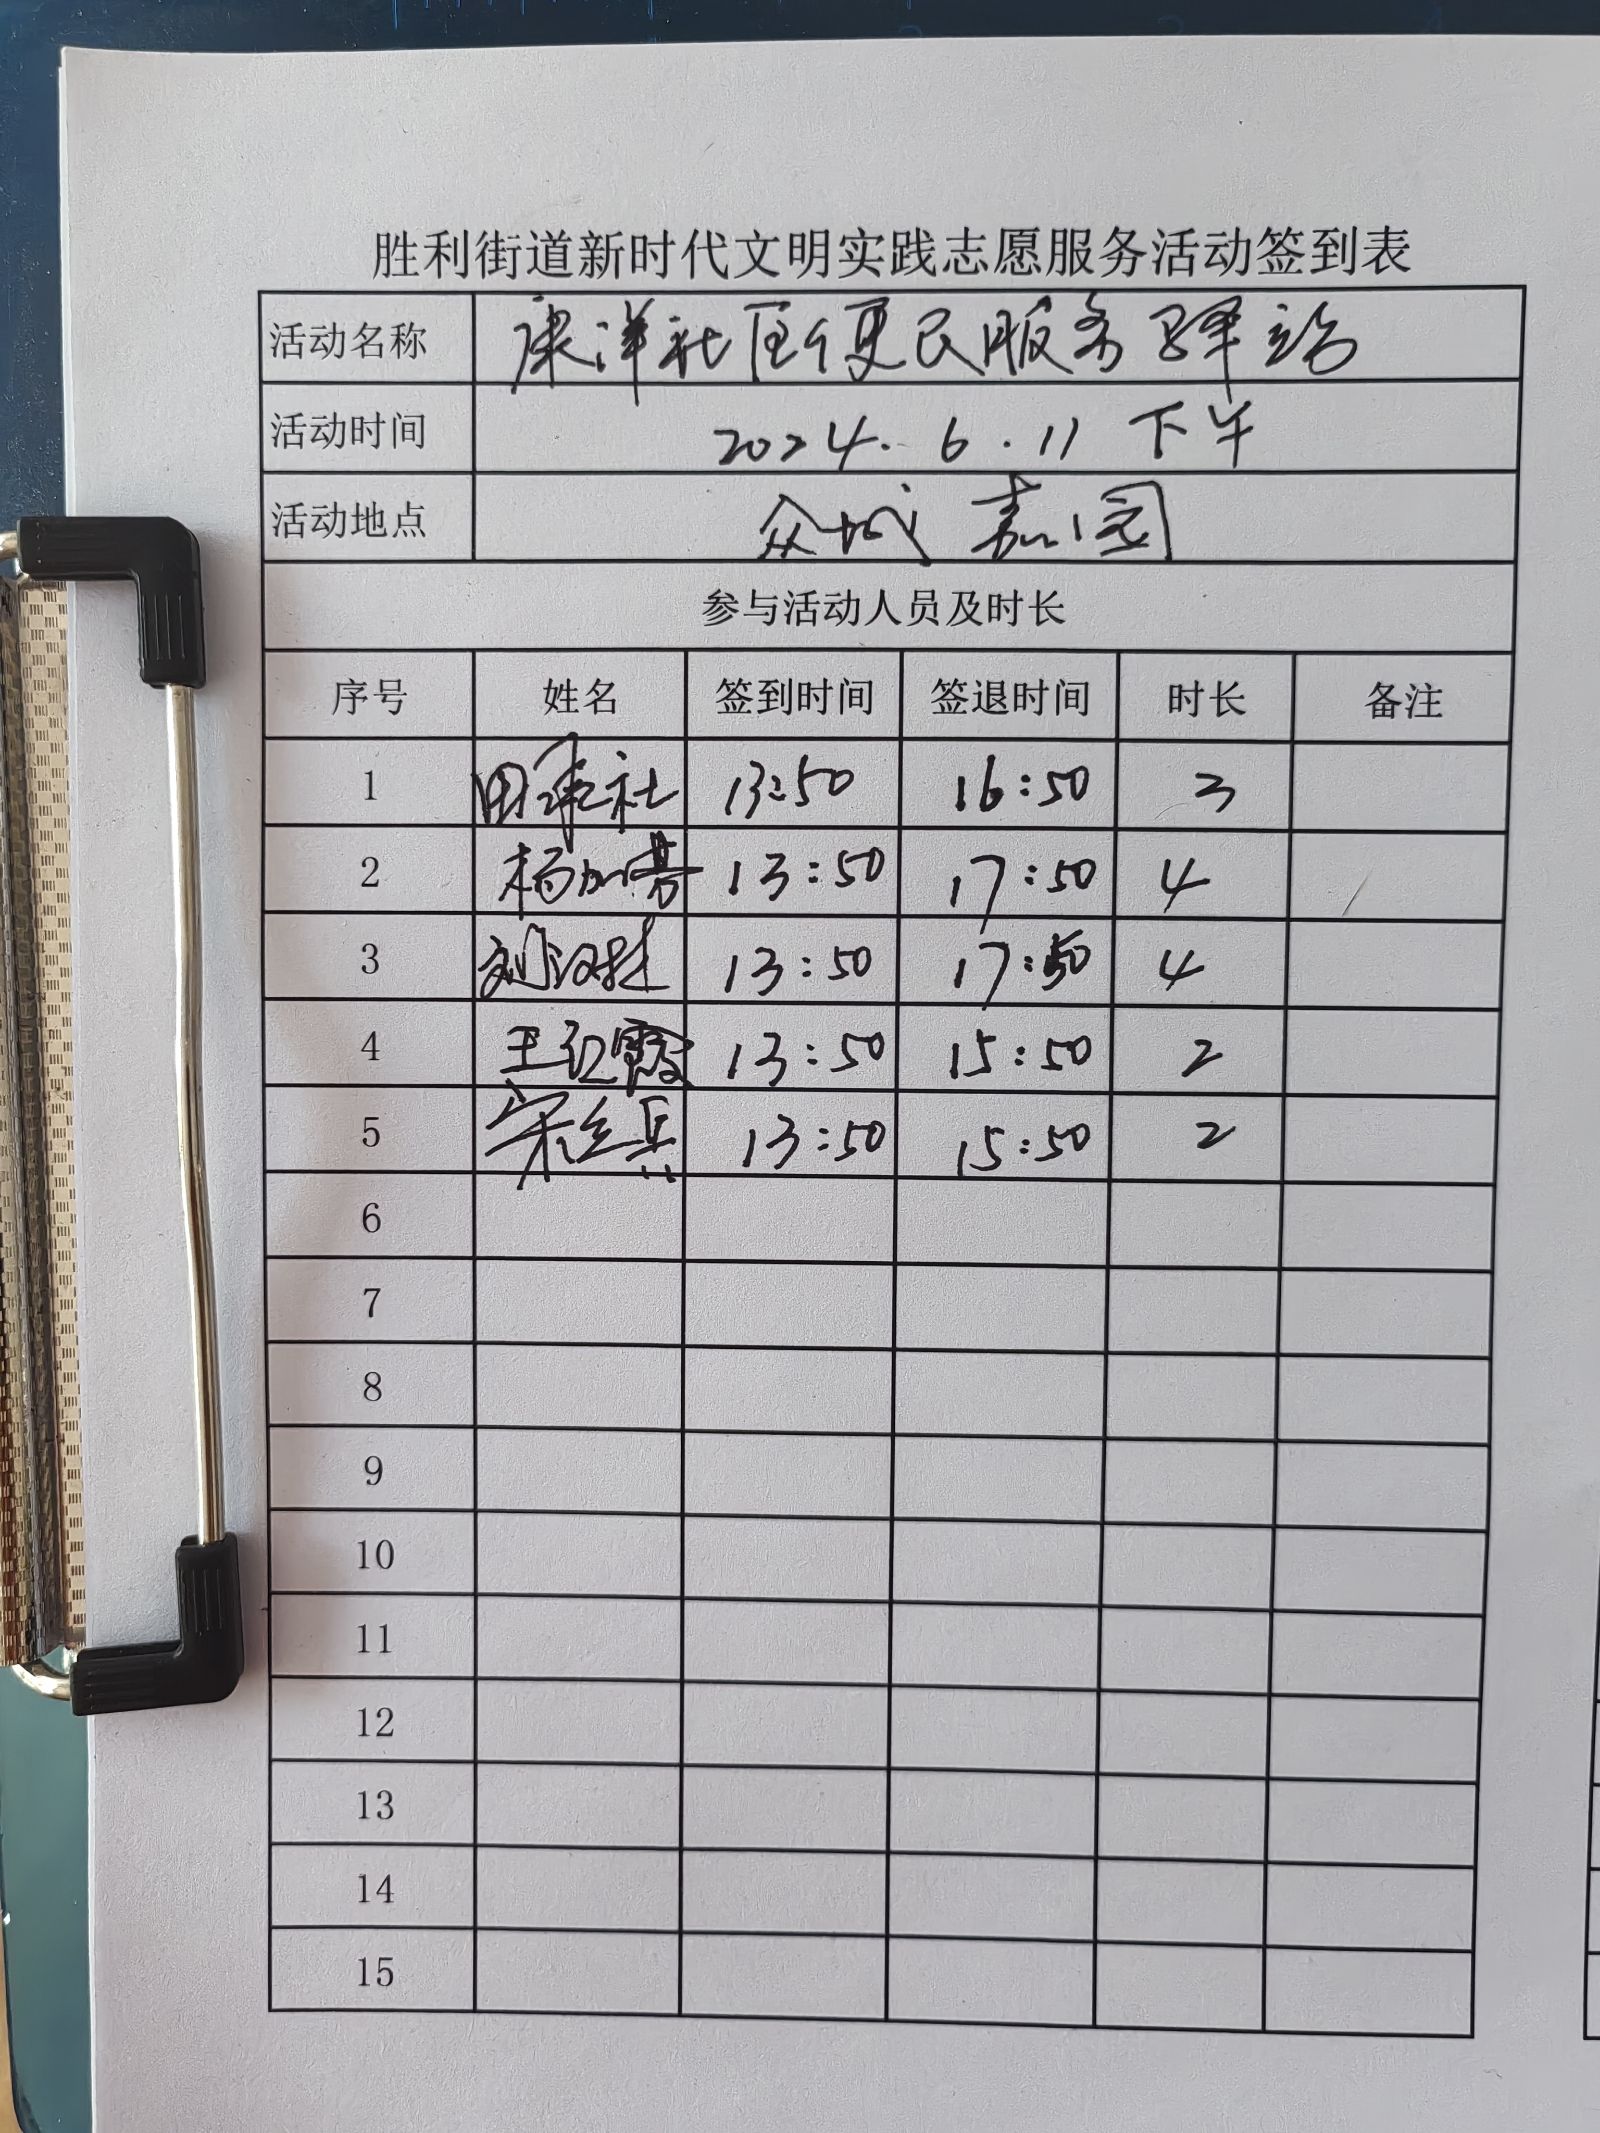 胜利街道新时代文明实践志愿服务活动签到表
活动名称 康洋社区便民服务驿站
活动时间 2024.6.11 下午
活动地点 众城嘉园
参与活动人员及时长
序号 姓名 签到时间 签退时间 时长 备注
1 13:50 16:50 3
2 杨加芳 13:50 17:50 4
3 13:50 17:50 4
4 王红霞 13:50 15:50 2
5 13:50 15:50 2
6
7
8
9
10
11
12
13
14
15